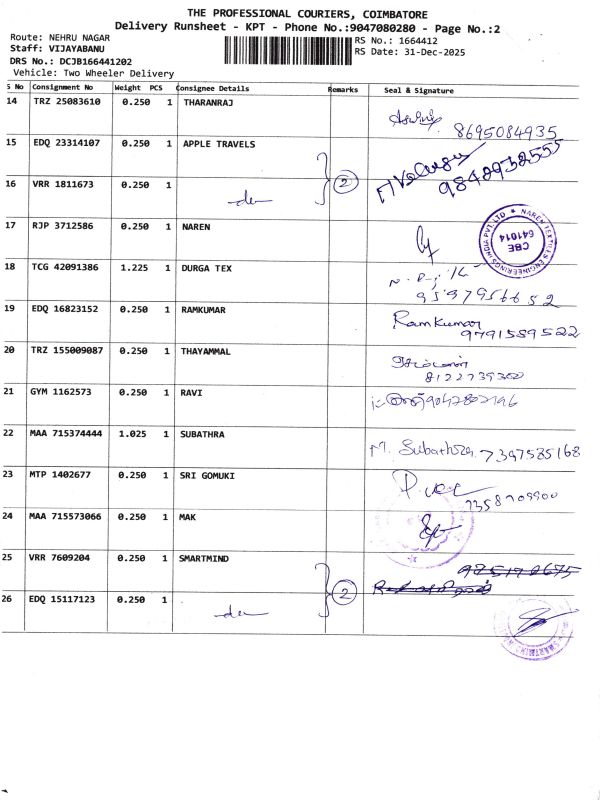 THE PROFESSIONAL COURIERS, COIMBATORE
Delivery Runsheet - KPT - Phone No.:9047080280 - Page No.:2
Route: NEHRU NAGAR
RS No.: 1664412
Staff: VIJAYABANU
RS Date: 31-Dec-2025
DRS No.: DCJB166441202
Vehicle: Two Wheeler Delivery
S No Consignment No Weight PCS Consignee Details Remarks Seal & Signature
14 TRZ 25083610 0.250 1 THARANRAJ
8695084935
15 EDQ 23314107 0.250 1 APPLE TRAVELS
2
9842932555
16 VRR 1811673 0.250 1
17 RJP 3712586 0.250 1 NAREN
NAREN TEXTILES ENGINEERINGS INDIA PVT. LTD
CBE
641014
18 TCG 42091386 1.225 1 DURGA TEX
9597956652
19 EDQ 16823152 0.250 1 RAMKUMAR
Ramkumar
9791589522
20 TRZ 155009087 0.250 1 THAYAMMAL
8122739300
21 GYM 1162573 0.250 1 RAVI
9042802196
22 MAA 715374444 1.025 1 SUBATHRA
M. Subathra 7397585168
23 MTP 1402677 0.250 1 SRI GOMUKI
7358709900
24 MAA 715573066 0.250 1 MAK
25 VRR 7609204 0.250 1 SMARTMIND
2
26 EDQ 15117123 0.250 1